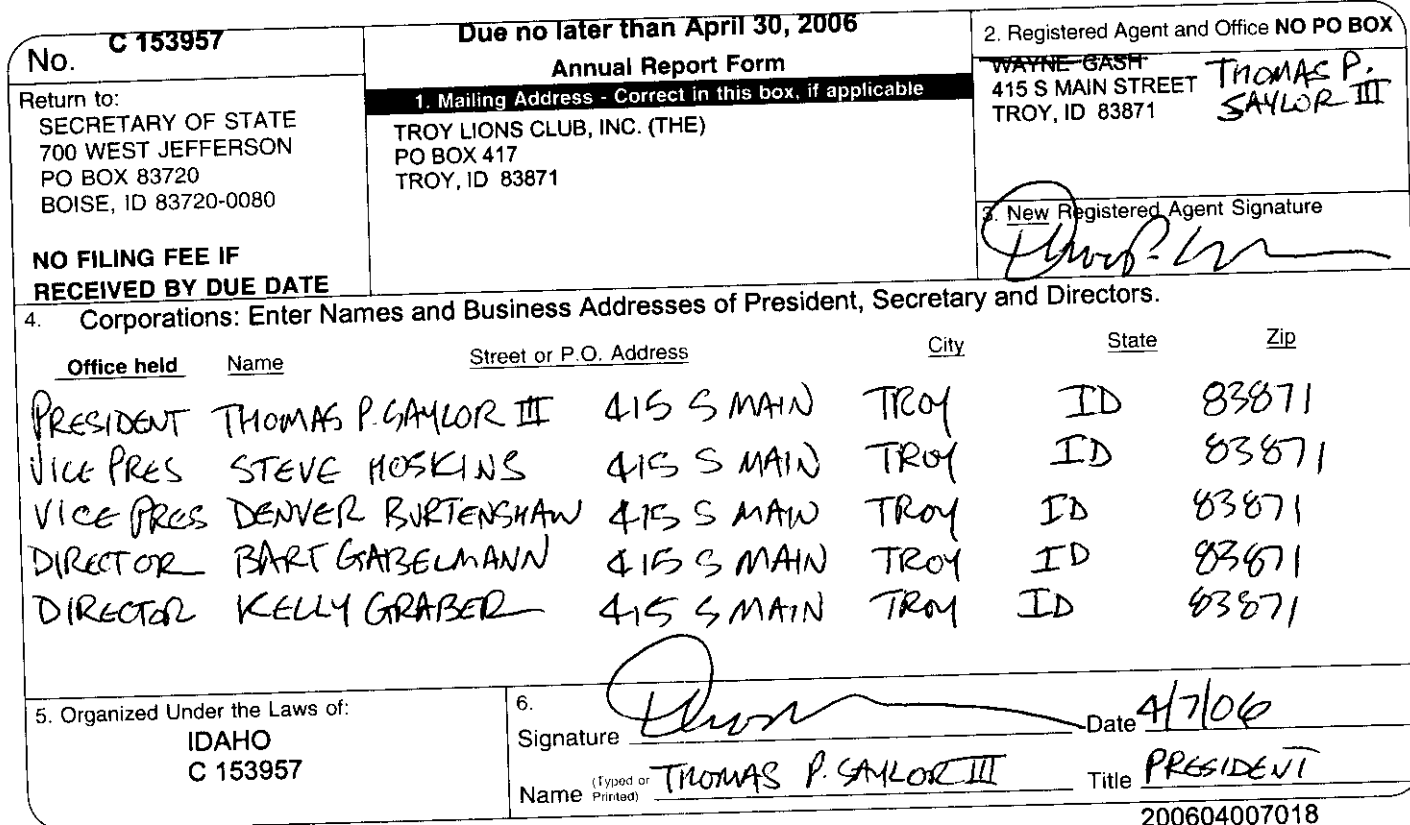 No. C 153957
Return to:
SECRETARY OF STATE
700 WEST JEFFERSON
PO BOX 83720
BOISE, ID 83720-0080
NO FILING FEE IF
RECEIVED BY DUE DATE
Due no later than April 30, 2006
Annual Report Form
1. Mailing Address - Correct in this box, if applicable
TROY LIONS CLUB, INC. (THE)
PO BOX 417
TROY, ID 83871
2. Registered Agent and Office NO PO BOX
WAYNE GASH THOMAS P.
415 S MAIN STREET SAYLOR III
TROY, ID 83871
3. New Registered Agent Signature
4. Corporations: Enter Names and Business Addresses of President, Secretary and Directors.
Office held Name Street or P.O. Address City State Zip
PRESIDENT THOMAS P. SAYLOR III 415 S MAIN TROY ID 83871
VICE PRES STEVE HOSKINS 415 S MAIN TROY ID 83871
VICE PRES DENVER BURTENSHAW 415 S MAIN TROY ID 83871
DIRECTOR BART GABELMANN 415 S MAIN TROY ID 83871
DIRECTOR KELLY GRABER 415 S MAIN TROY ID 83871
5. Organized Under the Laws of:
IDAHO
C 153957
6.
Signature Date 4/7/06
Name (Typed or Printed) THOMAS P. SAYLOR III Title PRESIDENT
200604007018